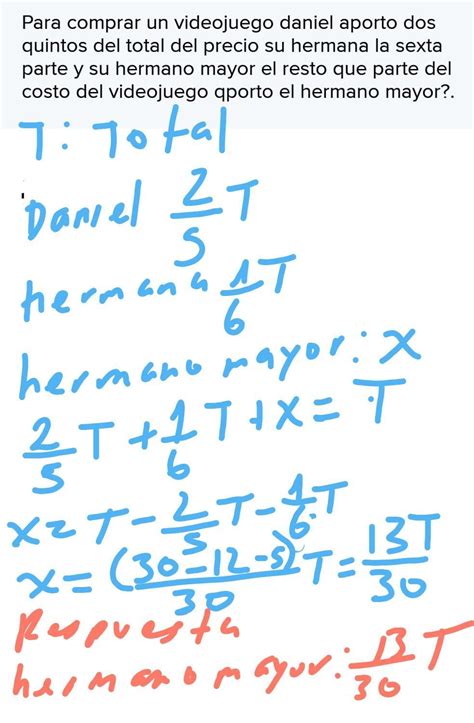 Para comprar un videojuego daniel aporto dos
quintos del total del precio su hermana la sexta
parte y su hermano mayor el resto que parte del
costo del videojuego qporto el hermano mayor?.
T: Total
Daniel 2/5 T
hermana 1/6 T
hermano mayor: x
2/5 T + 1/6 T + x = T
x = T - 2/5 T - 1/6 T
x = (30-12-5)/30 T = 13T/30
Respuesta
hermano mayor: 13/30 T